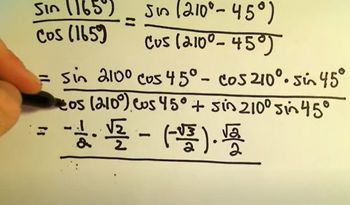 sin (165°) = sin (210° - 45°)
cos (165°) cos (210° - 45°)
= sin 210° cos 45° - cos 210° · sin 45°
cos (210°) cos 45° + sin 210° sin 45°
= - 1/2 · √2/2 - (-√3/2) · √2/2